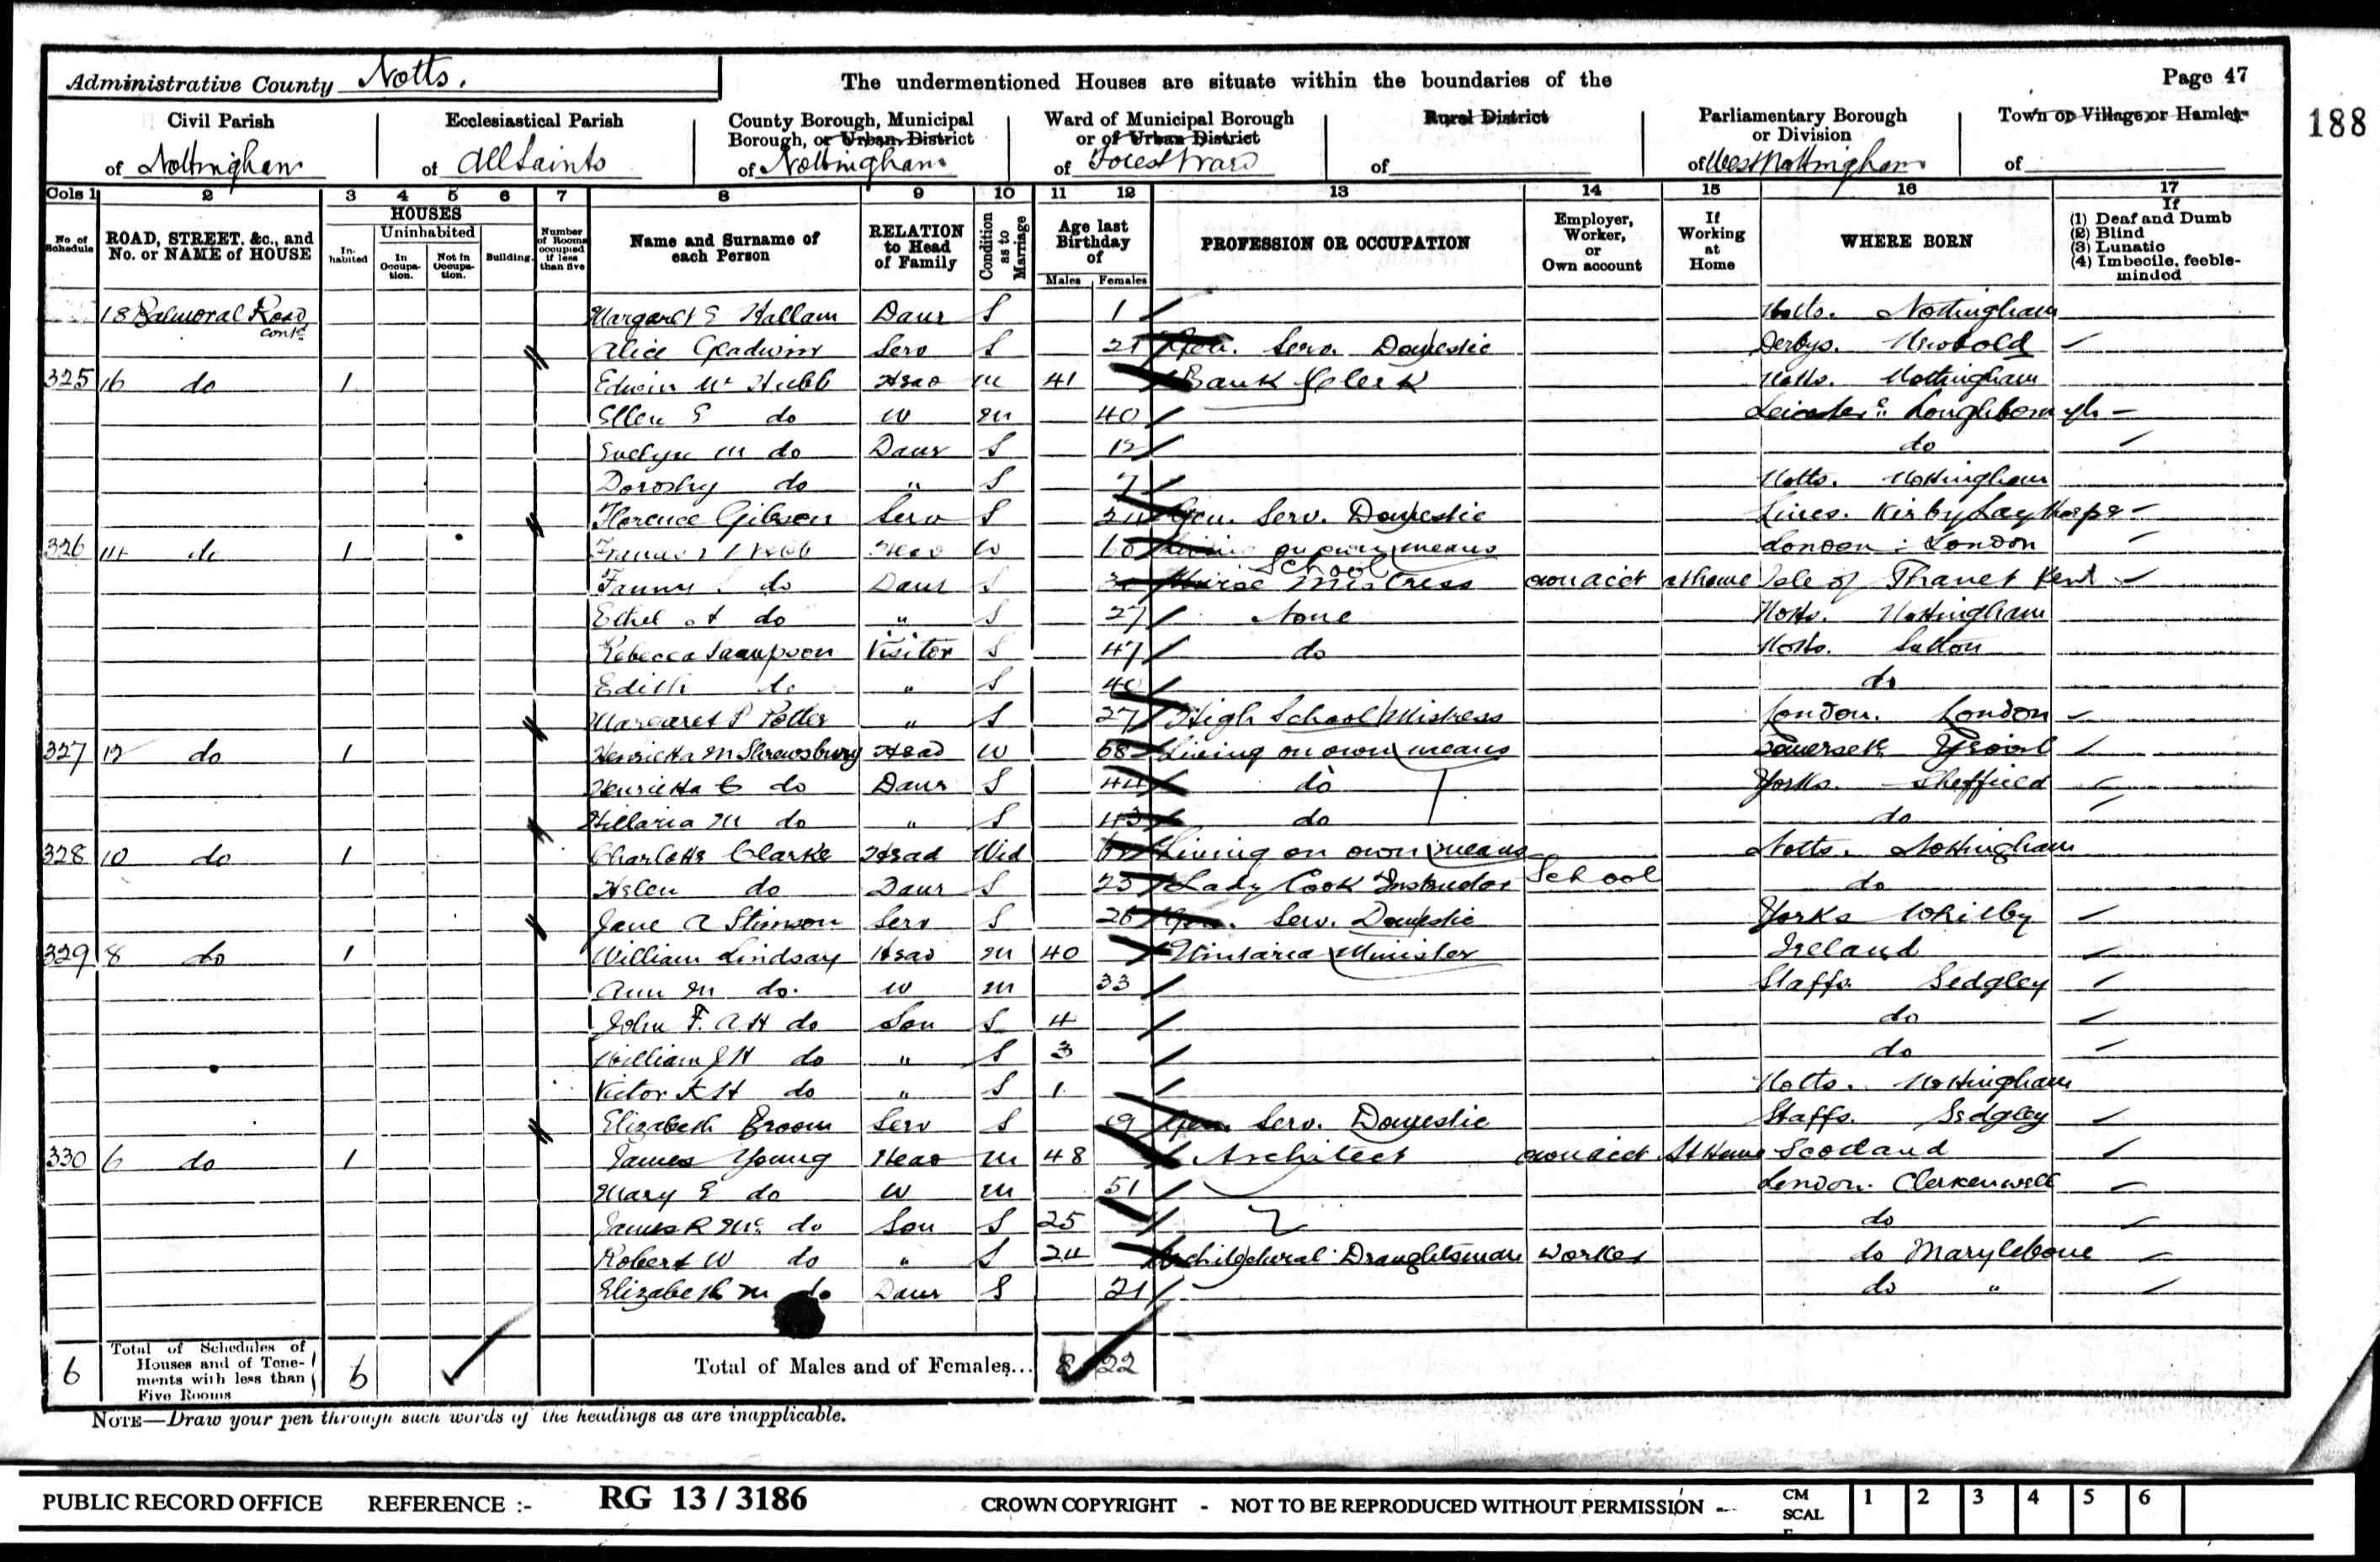 Administrative County Notts.
The undermentioned Houses are situate within the boundaries of the
Page 47
188
Civil Parish of Nottingham
Ecclesiastical Parish of All Saints
County Borough, Municipal Borough, or Urban District of Nottingham
Ward of Municipal Borough or of Urban District of Forest Ward
Rural District of
Parliamentary Borough or Division of West Nottingham
Town or Village or Hamlet of
Cols 1 2 3 4 5 6 7 8 9 10 11 12 13 14 15 16 17
No. of Schedule
ROAD, STREET, &c., and No. or NAME of HOUSE
HOUSES
Inhabited
Uninhabited
In Occupation.
Not in Occupation.
Building.
Number of Rooms occupied if less than five
Name and Surname of each Person
RELATION to Head of Family
Condition as to Marriage
Age last Birthday of
Males Females
PROFESSION OR OCCUPATION
Employer, Worker, or Own account
If Working at Home
WHERE BORN
If
(1) Deaf and Dumb
(2) Blind
(3) Lunatic
(4) Imbecile, feeble-minded
18 Balmoral Road contd Margaret E Hallam Daur S 1 Notts. Nottingham
Alice Gladwin Serv S 21 Gen. Serv. Domestic Derbys. Newbold
325 16 do 1 Edwin Head m 41 Bank Clerk Notts. Nottingham
Ellen E do W m 40 Leicester: Loughborough
Evelyn M do Daur S 12 do
Dorothy do " S 7 Notts. Nottingham
Florence Gibson Serv S Gen. Serv. Domestic Lincs. Kirby Laythorpe
326 14 do 1 Head W Living on own means London: London
Fanny do Daur S School Mistress own acct at home Isle of Thanet Kent
Ethel do " S 27 None Notts. Nottingham
Rebecca Sampson Visitor S 47 do Notts. Sutton
Edith do " S 40 do
Margaret P Potter " S 27 High School Mistress London. London
327 12 do 1 Henrietta M Shrewsbury Head W 68 Living on own means Somerset Yeovil
Henrietta C do Daur S 44 do Yorks. Sheffield
Hillaria M do " S 43 do do
328 10 do 1 Charlotte Clarke Head Wid Living on own means Notts. Nottingham
Helen do Daur S 23 Lady Cook Instructor School do
Jane A Stimson Serv S 26 Gen. Serv. Domestic Yorks Whitby
329 8 do 1 William Lindsay Head m 40 Unitaria Minister Ireland
Ann M do. W m 33 Staffs. Sedgley
John F. A H do Son S 4 do
William J H do " S 3 do
Victor K H do " S 1 Notts. Nottingham
Elizabeth Broom Serv S 19 Gen. Serv. Domestic Staffs. Sedgley
330 6 do 1 James Young Head m 48 Architect own acct At Home Scotland
Mary E do W m 51 London. Clerkenwell
James R Mc do Son S 25 do
Robert W do " S 24 Architectural Draughtsman Worker do Marylebone
Elizabeth M do Daur S 21 do "
6 Total of Schedules of Houses and of Tenements with less than Five Rooms 6
Total of Males and of Females... 8 22
NOTE—Draw your pen through such words of the headings as are inapplicable.
PUBLIC RECORD OFFICE REFERENCE :- RG 13 / 3186 CROWN COPYRIGHT - NOT TO BE REPRODUCED WITHOUT PERMISSION
CM SCAL 1 2 3 4 5 6